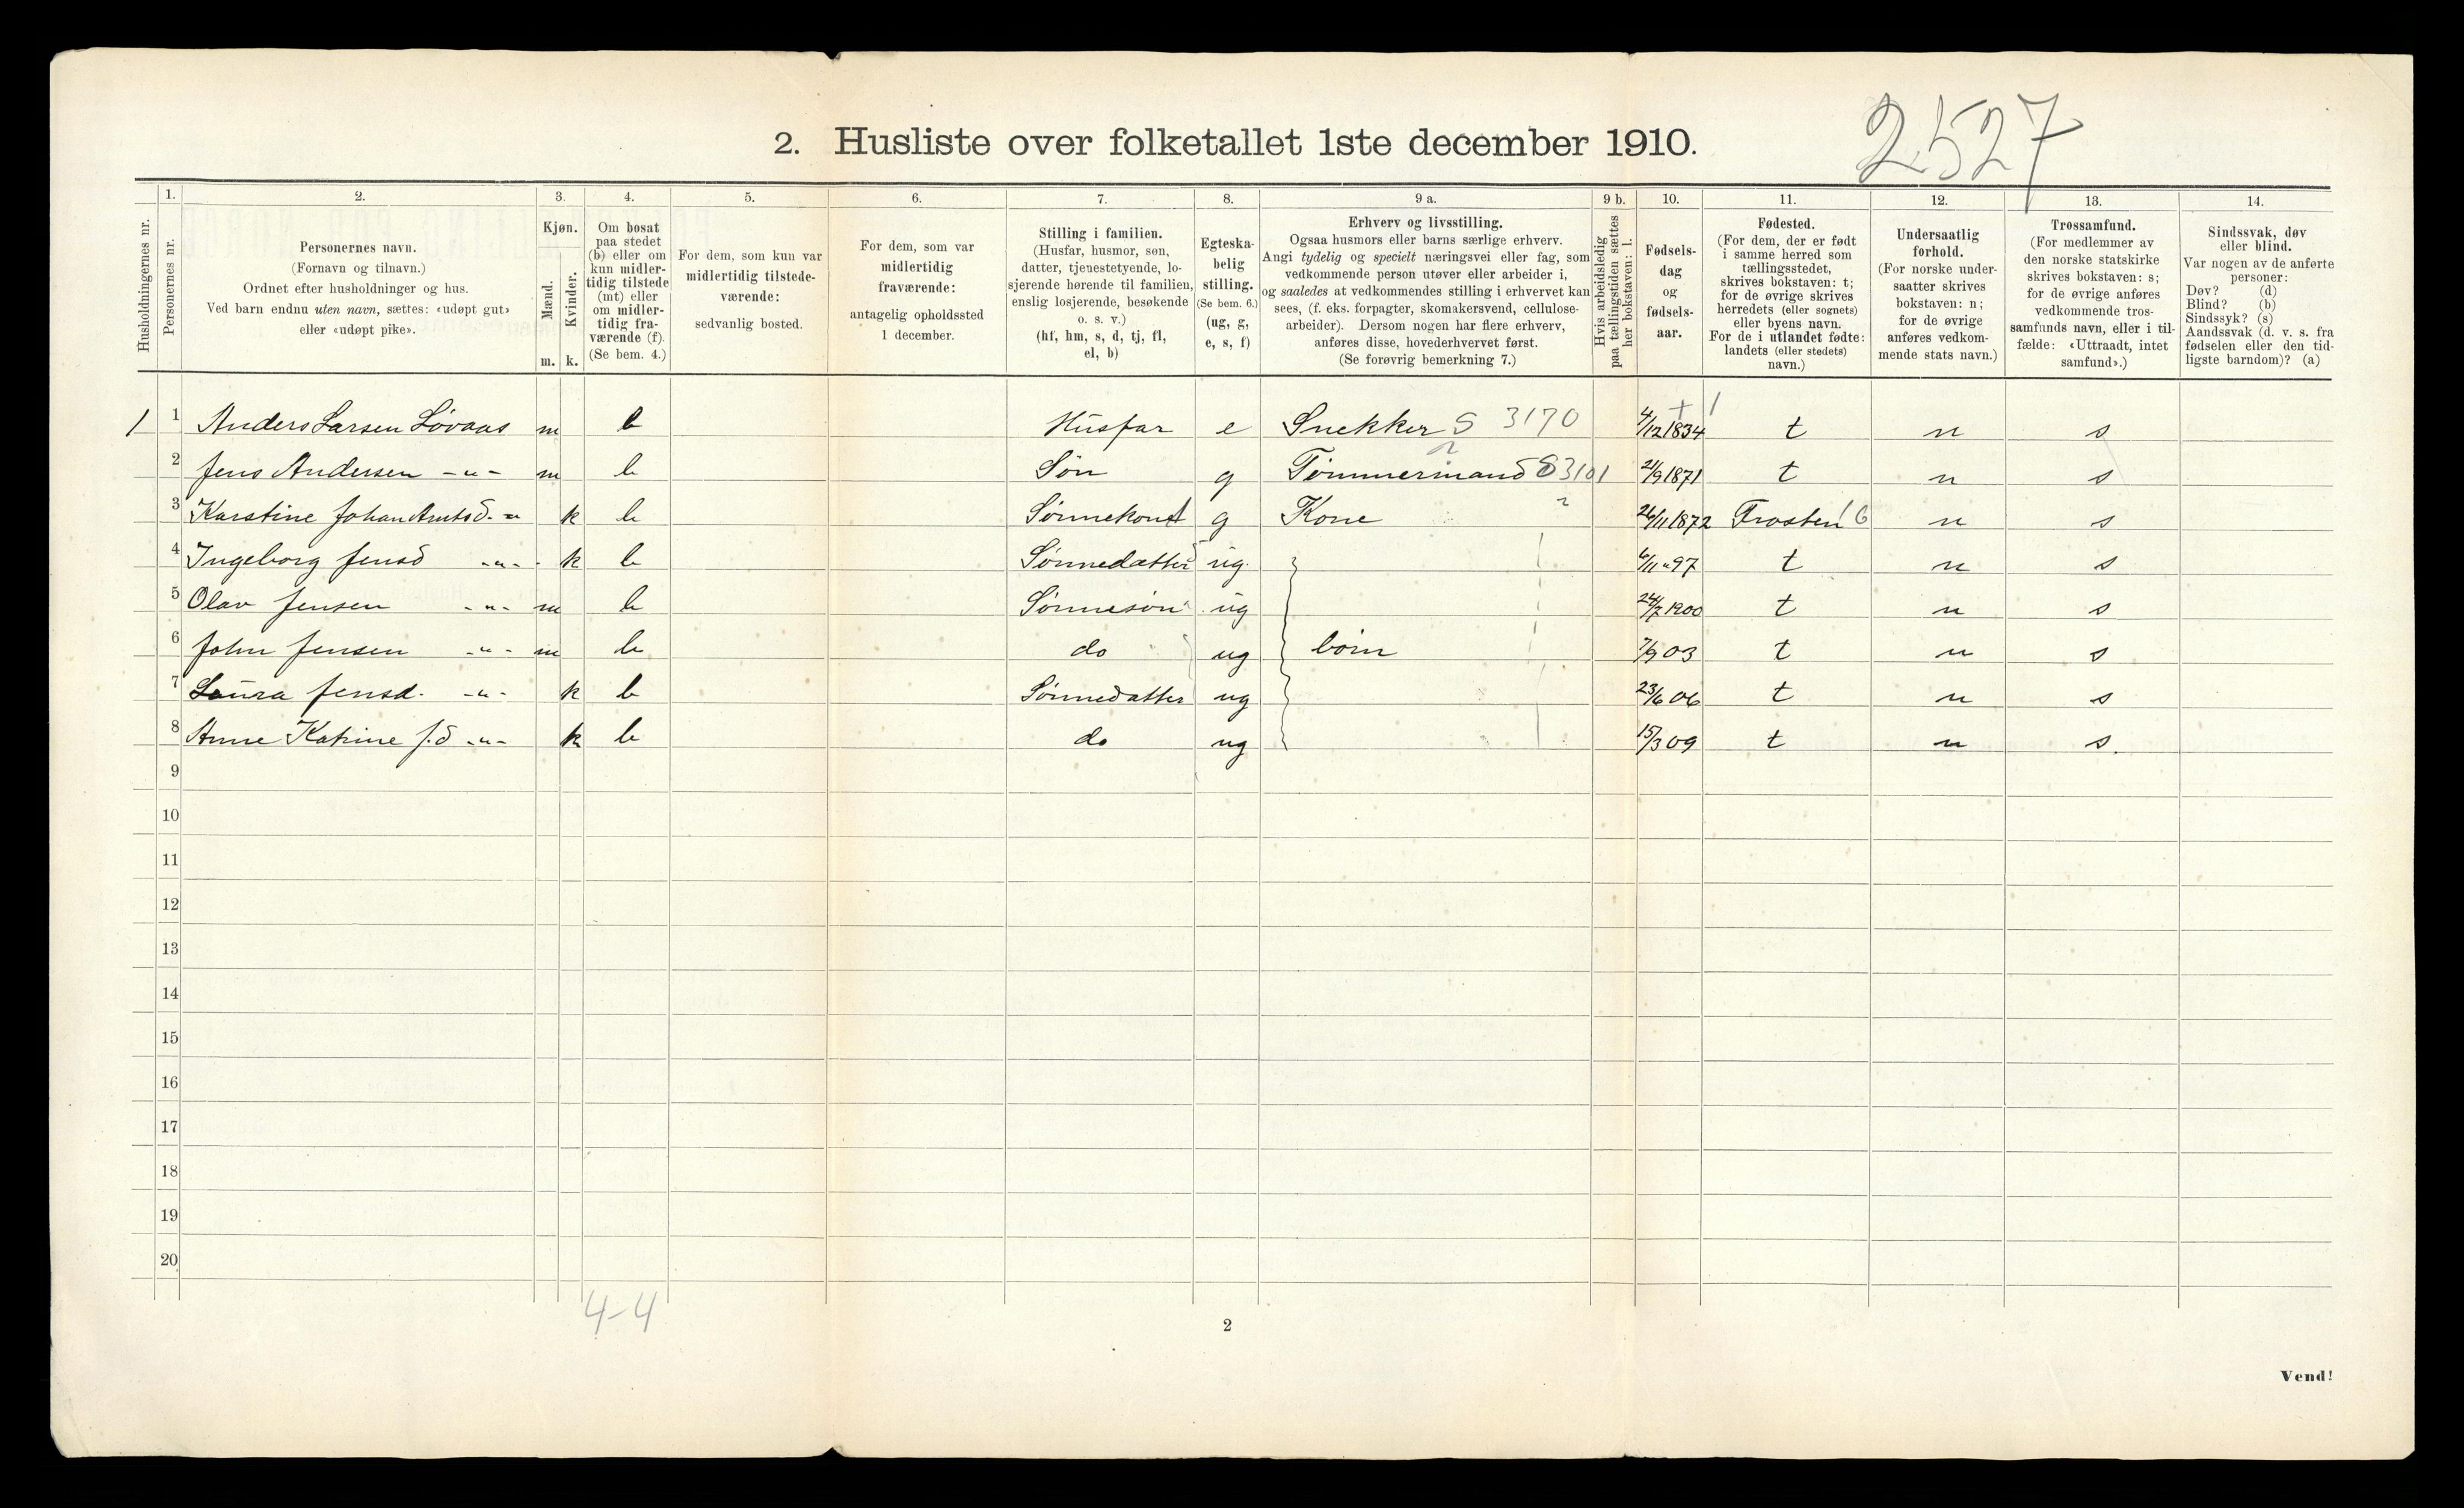 2. Husliste over folketallet 1ste december 1910.
2527
Husholdningernes nr.
1.
Personernes nr.
2.
Personernes navn.
(Fornavn og tilnavn.)
Ordnet efter husholdninger og hus.
Ved barn endnu uten navn, sættes: «udøpt gut»
eller «udøpt pike».
3.
Kjøn.
Mænd.
m.
Kvinder.
k.
4.
Om bosat
paa stedet
(b) eller om
kun midler-
tidig tilstede
(mt) eller
om midler-
tidig fra-
værende (f).
(Se bem. 4.)
5.
For dem, som kun var
midlertidig tilstede-
værende:
sedvanlig bosted.
6.
For dem, som var
midlertidig
fraværende:
antagelig opholdssted
1 december.
7.
Stilling i familien.
(Husfar, husmor, søn,
datter, tjenestetyende, lo-
sjerende hørende til familien,
enslig losjerende, besøkende
o. s. v.)
(hf, hm, s, d, tj, fl,
el, b)
8.
Egteska-
belig
stilling.
(Se bem. 6.)
(ug, g,
e, s, f)
9 a.
Erhverv og livsstilling.
Ogsaa husmors eller barns særlige erhverv.
Angi tydelig og specielt næringsvei eller fag, som
vedkommende person utøver eller arbeider i,
og saaledes at vedkommendes stilling i erhvervet kan
sees, (f. eks. forpagter, skomakersvend, cellulose-
arbeider). Dersom nogen har flere erhverv,
anføres disse, hovederhvervet først.
(Se forøvrig bemerkning 7.)
9 b.
Hvis arbeidsledig
paa tællingstiden sættes
her bokstaven: l.
10.
Fødsels-
dag
og
fødsels-
aar.
11.
Fødested.
(For dem, der er født
i samme herred som
tællingsstedet,
skrives bokstaven: t;
for de øvrige skrives
herredets (eller sognets)
eller byens navn.
For de i utlandet fødte:
landets (eller stedets)
navn.)
12.
Undersaatlig
forhold.
(For norske under-
saatter skrives
bokstaven: n;
for de øvrige
anføres vedkom-
mende stats navn.)
13.
Trossamfund.
(For medlemmer av
den norske statskirke
skrives bokstaven: s;
for de øvrige anføres
vedkommende tros-
samfunds navn, eller i til-
fælde: «Uttraadt, intet
samfund».)
14.
Sindssvak, døv
eller blind.
Var nogen av de anførte
personer:
Døv? (d)
Blind? (b)
Sindssyk? (s)
Aandssvak (d. v. s. fra
fødselen eller den tid-
ligste barndom)? (a)
1 1 Anders Larsen Løvaas m b Husfar e Snekker S 3170 4/12 1834 t n s
2 Jens Andersen -"- m b Søn g Tømmermand S 3101 21/9 1871 t n s
3 Karstine Johan Arntsd. -"- k b Sønnekone g Kone 26/11 1872 Frosten 16 n s
4 Ingeborg Jensd -"- k b Sønnedatter ug 6/11 "97 t n s
5 Olav Jensen -"- m b Sønnesøn ug 24/7 1900 t n s
6 John Jensen -"- m b do ug børn 7/9 03 t n s
7 Laura Jensd. -"- k b Sønnedatter ug 23/6 06 t n s
8 Anne Katrine J.d -"- k b do ug 15/3 09 t n s.
9
10
11
12
13
14
15
16
17
18
19
20
4-4
2
Vend!